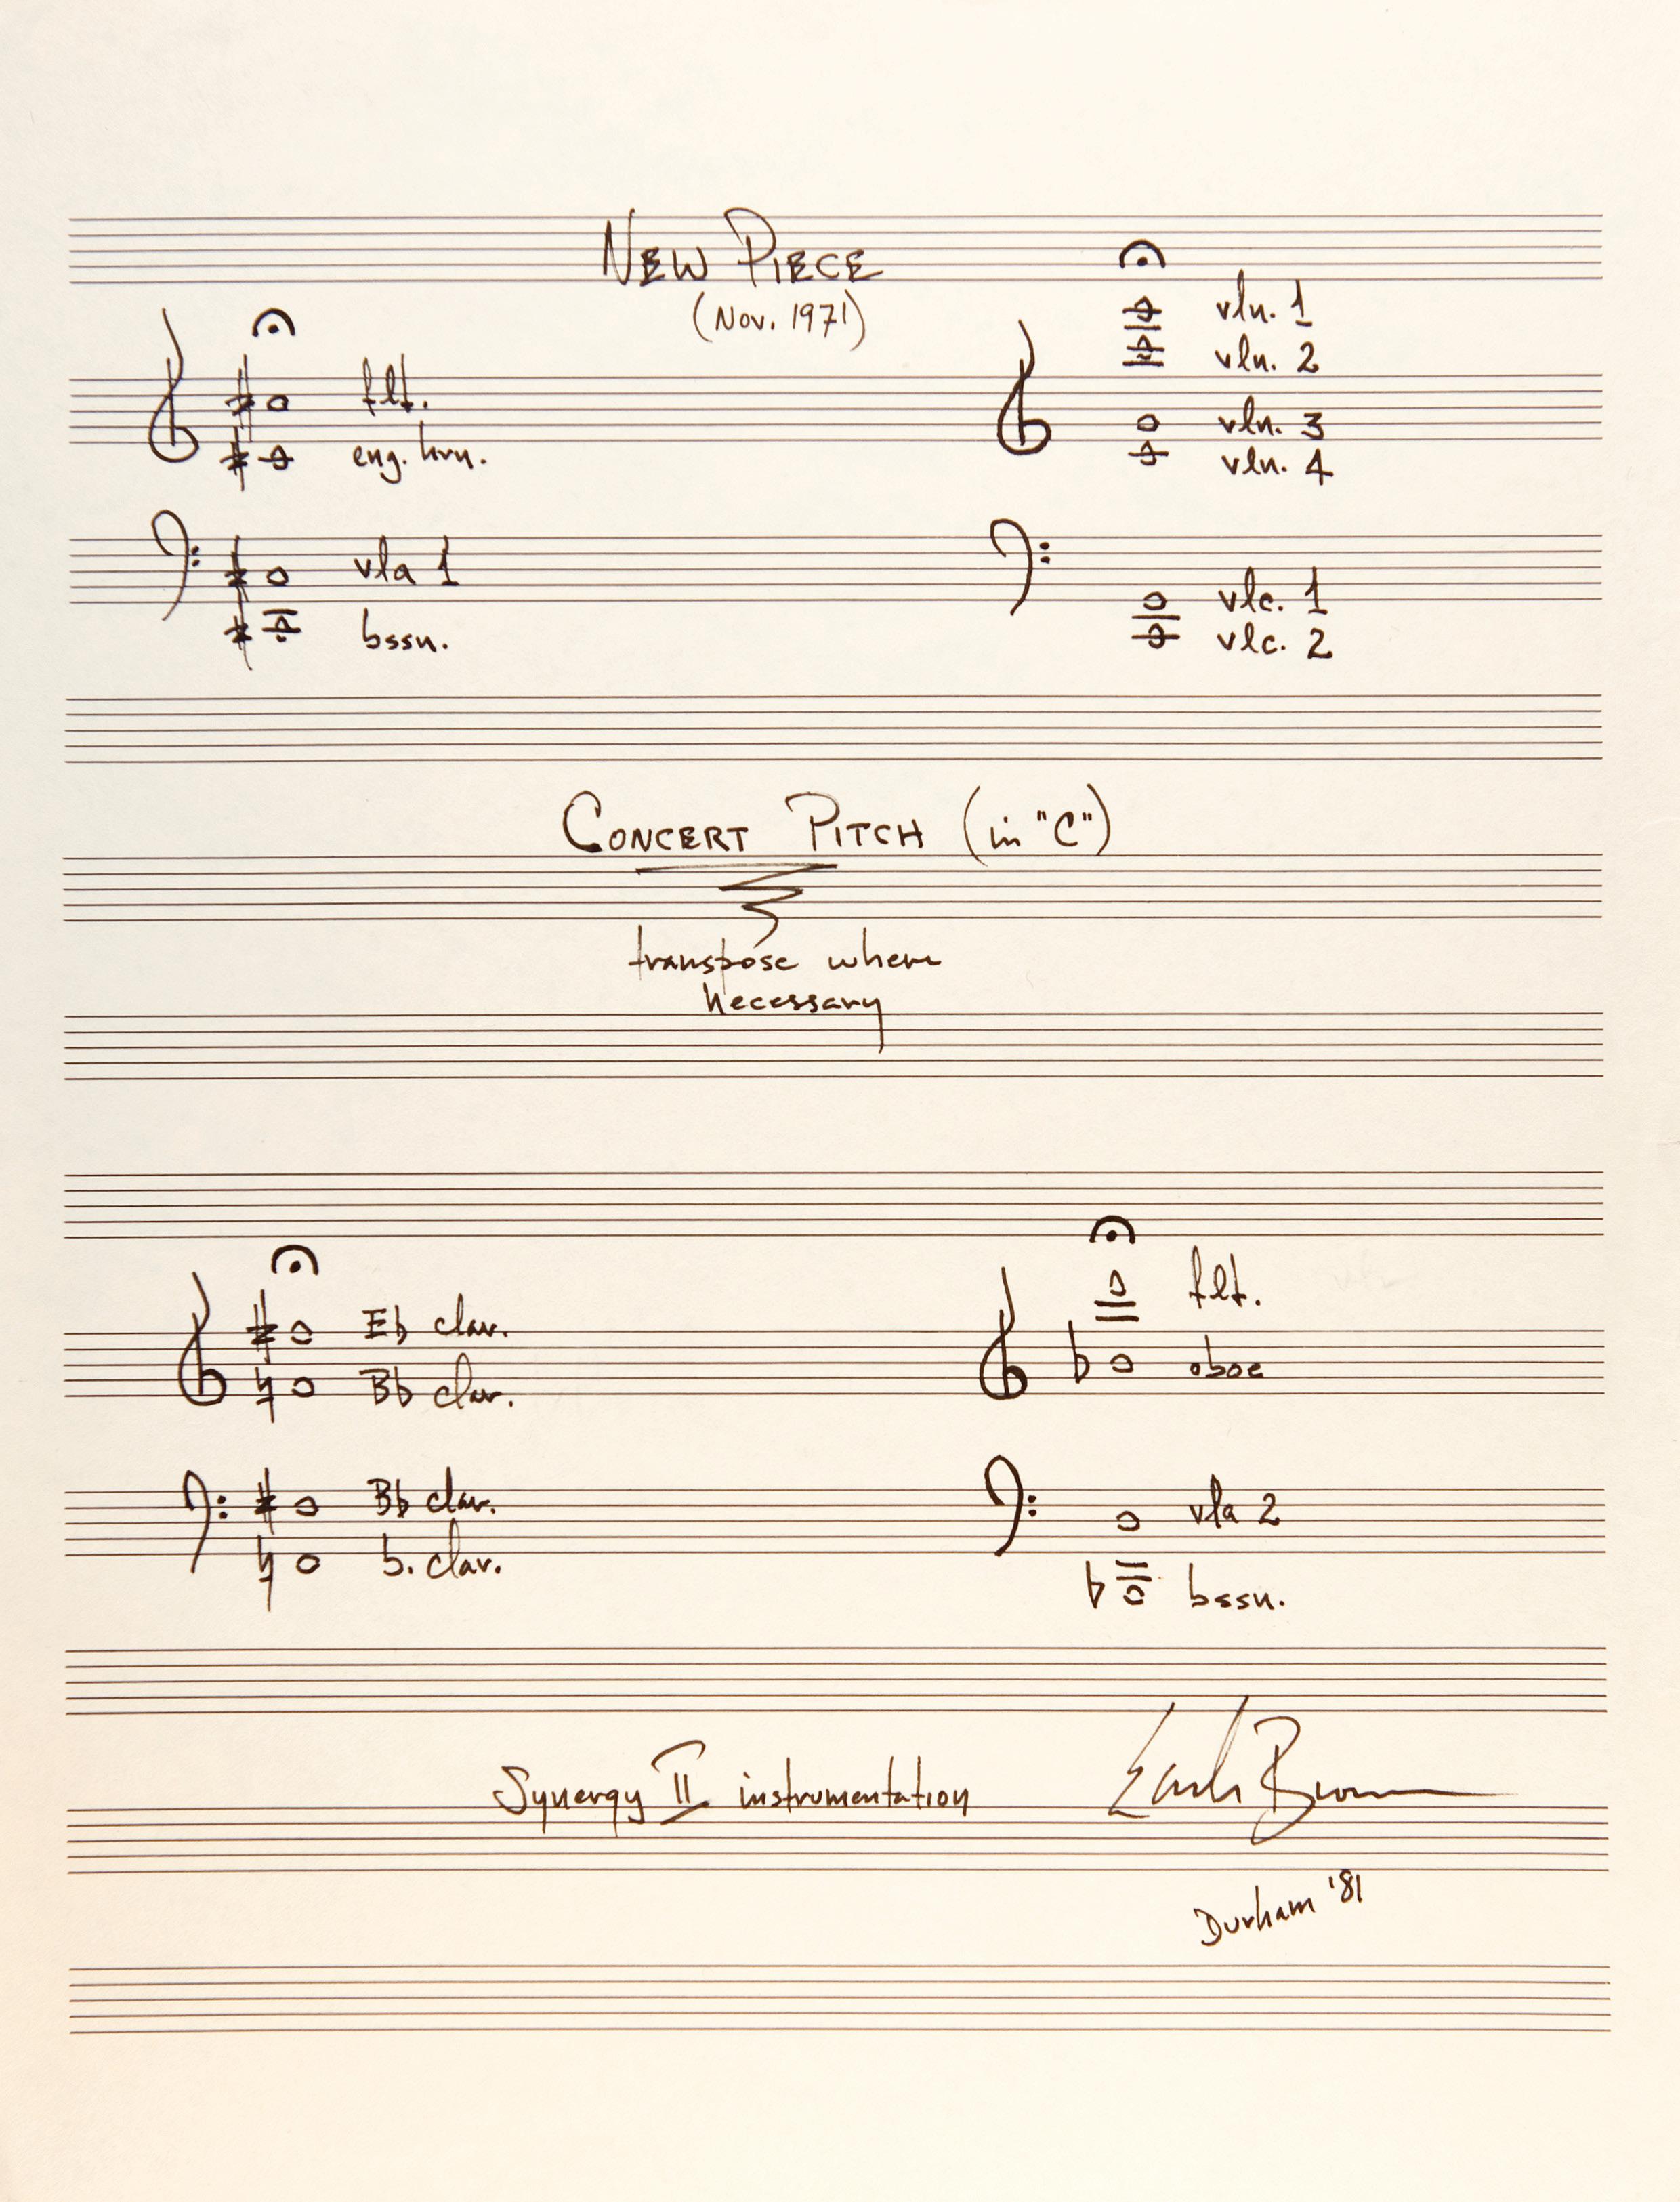 NEW PIECE
(Nov. 1971)
flt.
eng. hrn.
vla 1
bssn.
vln. 1
vln. 2
vln. 3
vln. 4
vlc. 1
vlc. 2
CONCERT PITCH (in "C")
transpose where
necessary
Eb clar.
Bb clar.
Bb clar.
b. clar.
flt.
oboe
vla 2
bssn.
Synergy II instrumentation
Earle Brown
Durham '81